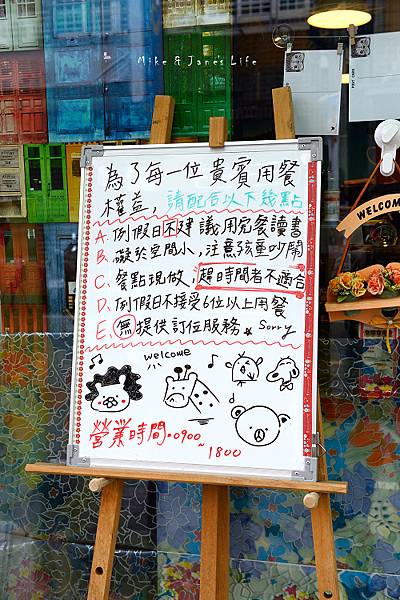 Mike & Jane's Life
為了每一位貴賓用餐
權益，請配合以下幾點
A. 例假日不建議用完餐讀書
B. 礙於空間小，注意孩童吵鬧
C. 餐點現做，趕時間者不適合
D. 例假日不接受6位以上用餐
E. 無提供訂位服務。Sorry
welcome
營業時間・0900~1800
WELCOME